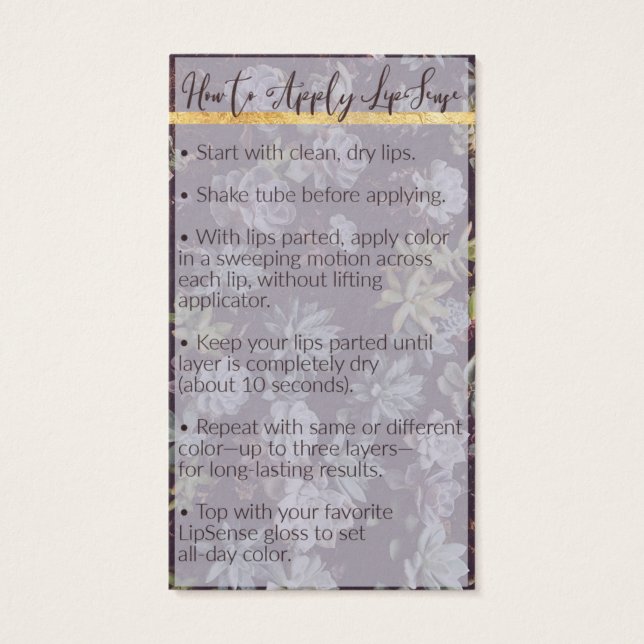 How to Apply LipSense
• Start with clean, dry lips.
• Shake tube before applying.
• With lips parted, apply color
in a sweeping motion across
each lip, without lifting
applicator.
• Keep your lips parted until
layer is completely dry
(about 10 seconds).
• Repeat with same or different
color—up to three layers—
for long-lasting results.
• Top with your favorite
LipSense gloss to set
all-day color.